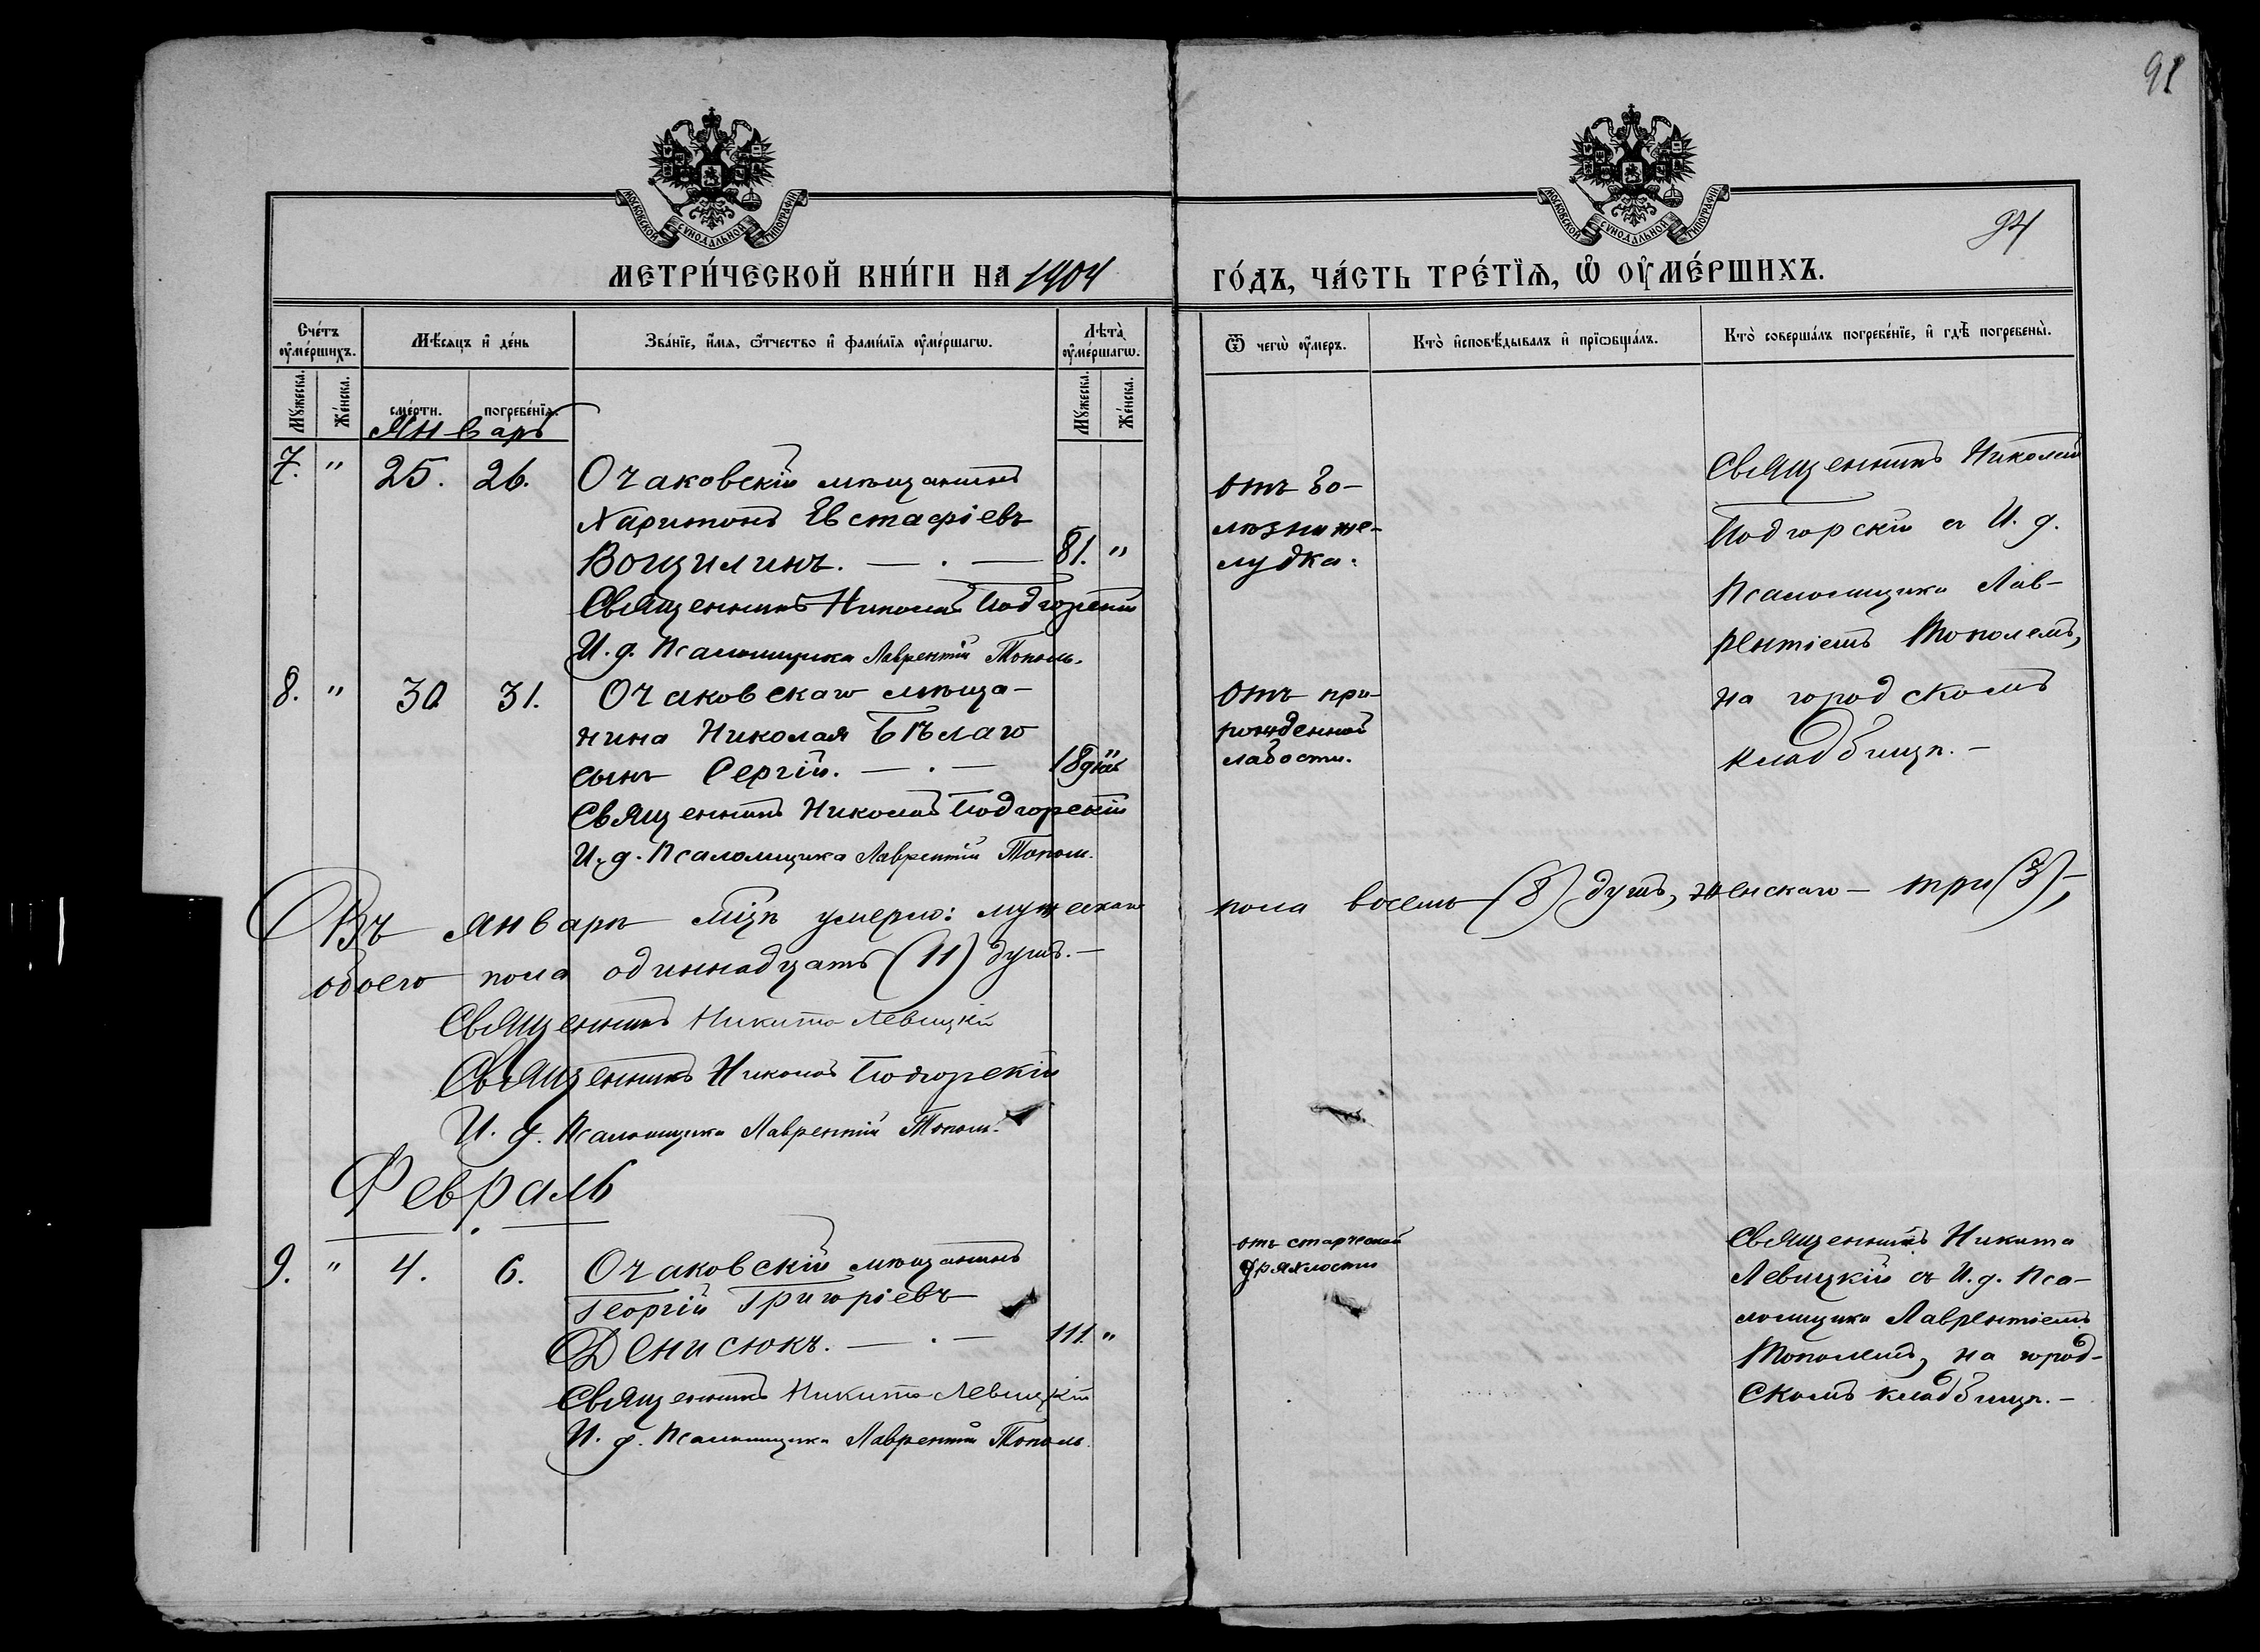 91
МОСКОВСКОЙ СѴНОДАЛЬНОЙ ТИПОГРАФІИ
МОСКОВСКОЙ СѴНОДАЛЬНОЙ ТИПОГРАФІИ
94
МЕТРИ́ЧЕСКОЙ КНИ́ГИ НА 1904
ГО́ДЪ, ЧА́СТЬ ТРЕ́ТЇѦ, Ѡ҆ ОУ҆МЕ́РШИХЪ.
Сче́тъ оу҆ме́ршихъ.
Мѣ́сяцъ и҆ де́нь
Зва́нїе, и҆́мя, ѻ҆́тчество и҆ фами́лїя оу҆ме́ршагѡ.
Лѣта̀ оу҆ме́ршагѡ.
Ѿ чегѡ̀ оу҆́меръ.
Кто̀ и҆сповѣ́дывалъ и҆ прїѡбща́лъ.
Кто̀ соверша́лъ погребе́нїе, и҆ гдѣ̀ погребены̀.
Мꙋ́жеска.
Же́нска.
сме́рти.
погребе́нїя.
Мꙋ́жеска.
Же́нска.
Январь
7. " 25. 26. Очаковскій мѣщанинъ
Харитонъ Евстафіевъ
Вощилинъ. — . — 81. "
Священникъ Николай Подгорскій
И. д. Псаломщика Лаврентій Тополь.
отъ бо-
лѣзни же-
лудка.
Священникъ Николай
Подгорскій съ И. д.
Псаломщика Лав-
рентіемъ Тополемъ,
на городскомъ
кладбищѣ. —
8. " 30. 31. Очаковскаго мѣща-
нина Николая Бѣлаго
сынъ Сергій. — . — 18 дней "
Священникъ Николай Подгорскій
И. д. Псаломщика Лаврентій Тополь.
Отъ при-
рожденной
слабости.
Въ январѣ мцѣ умерло: мужескаго пола восемь (8) душъ, женскаго — три (3), —
обоего пола одиннадцать (11) душъ. —
Священникъ Никита Левицкій
Священникъ Николай Подгорскій
И. д. Псаломщика Лаврентій Тополь.
Февраль
9. " 4. 6. Очаковскій мѣщанинъ
Георгій Григоріевъ
Денисюкъ. — . — 111. "
Священникъ Никита Левицкій
И. д. Псаломщика Лаврентій Тополь.
отъ старческой
дряхлости
Священникъ Никита
Левицкій съ И. д. Пса-
ломщика Лаврентіемъ
Тополемъ, на город-
скомъ кладбищѣ. —